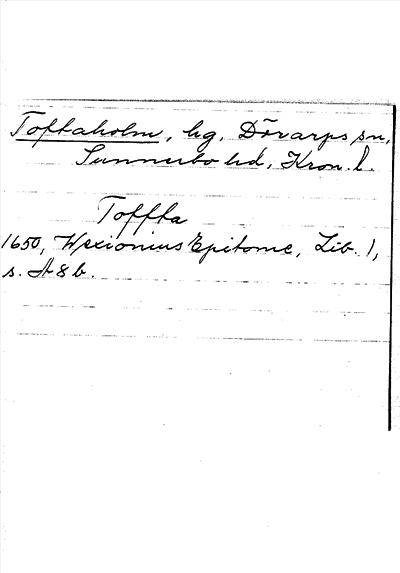 Toftaholm, hg, Dörarps sn,
Sunnerbo hd, Kron. l.
Toffta
1650, Wexionius Epitome, Lib. 1,
s. A8b.